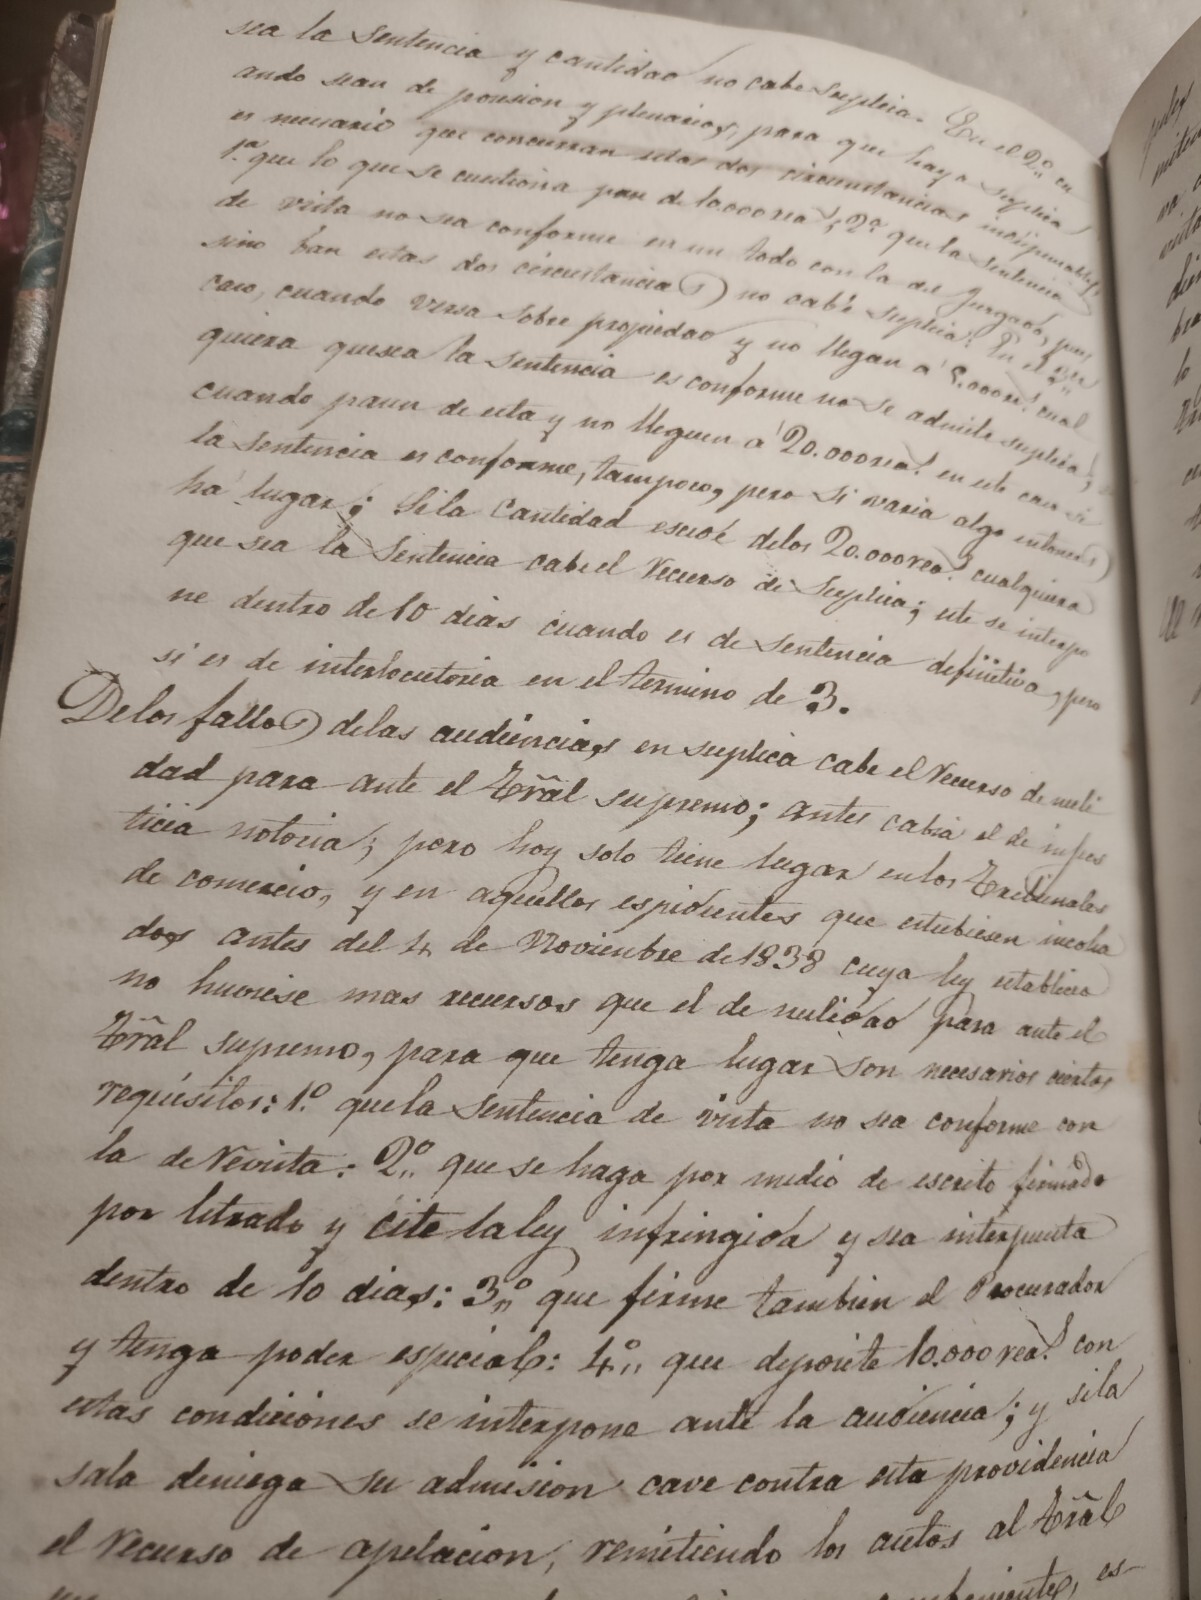 sea la Sentencia y cantidad no cabe Suplica. En el 2º cu
ando sean de posesion y plenarios, para que haya Suplica
es necesario que concurran estas dos circunstancias indispensables,
1ª que lo que se cuestiona pase de 10.000 rea.s; 2ª que la Sentencia
de vista no sea conforme en un todo con la del Juzgado, pues
sino han estas dos circustancias no cabe suplica. En el 3er
caso, cuando versa sobre propiedad y no llegan a 5.000 rea.s cual
quiera que sea la Sentencia es conforme no se admite suplica;
cuando pasan de esta y no lleguen á 20.000 rea.s en este caso si
la sentencia es conforme, tampoco, pero si varia algo entonces
há lugar; Si la Cantidad escede de los 20.000 rea.s cualquiera
que sea la Sentencia cabe el Recurso de Suplica; este se interpo
ne dentro de 10 dias cuando es de Sentencia definitiva, pero
si es de interlocutoria en el termino de 3.
De los fallos de las audiencias en suplica cabe el Recurso de nuli
dad para ante el Trãl supremo; antes cabia el de injus
ticia notoria; pero hoy solo tiene lugar en los Tribunales
de comercio, y en aquellos espidientes que estubiesen incoha
dos antes del 4 de Noviembre de 1838 cuya ley establecio
no huviese mas recursos que el de nulidad para ante el
Trãl supremo, para que tenga lugar son necesarios ciertos
requisitos: 1º que la Sentencia de vista no sea conforme con
la de Revista: 2º que se haga por medio de escrito firmado
por letrado y cite la ley infringida y sea interpuesta
dentro de 10 dias: 3º que firme tambien el Procurador
y tenga poder especial: 4º que deposite 10.000 rea.s con
estas condiciones se interpone ante la audiencia; y si la
sala deniega su admision cave contra esta providencia
el Recurso de apelacion, remitiendo los autos al Trãl
es-